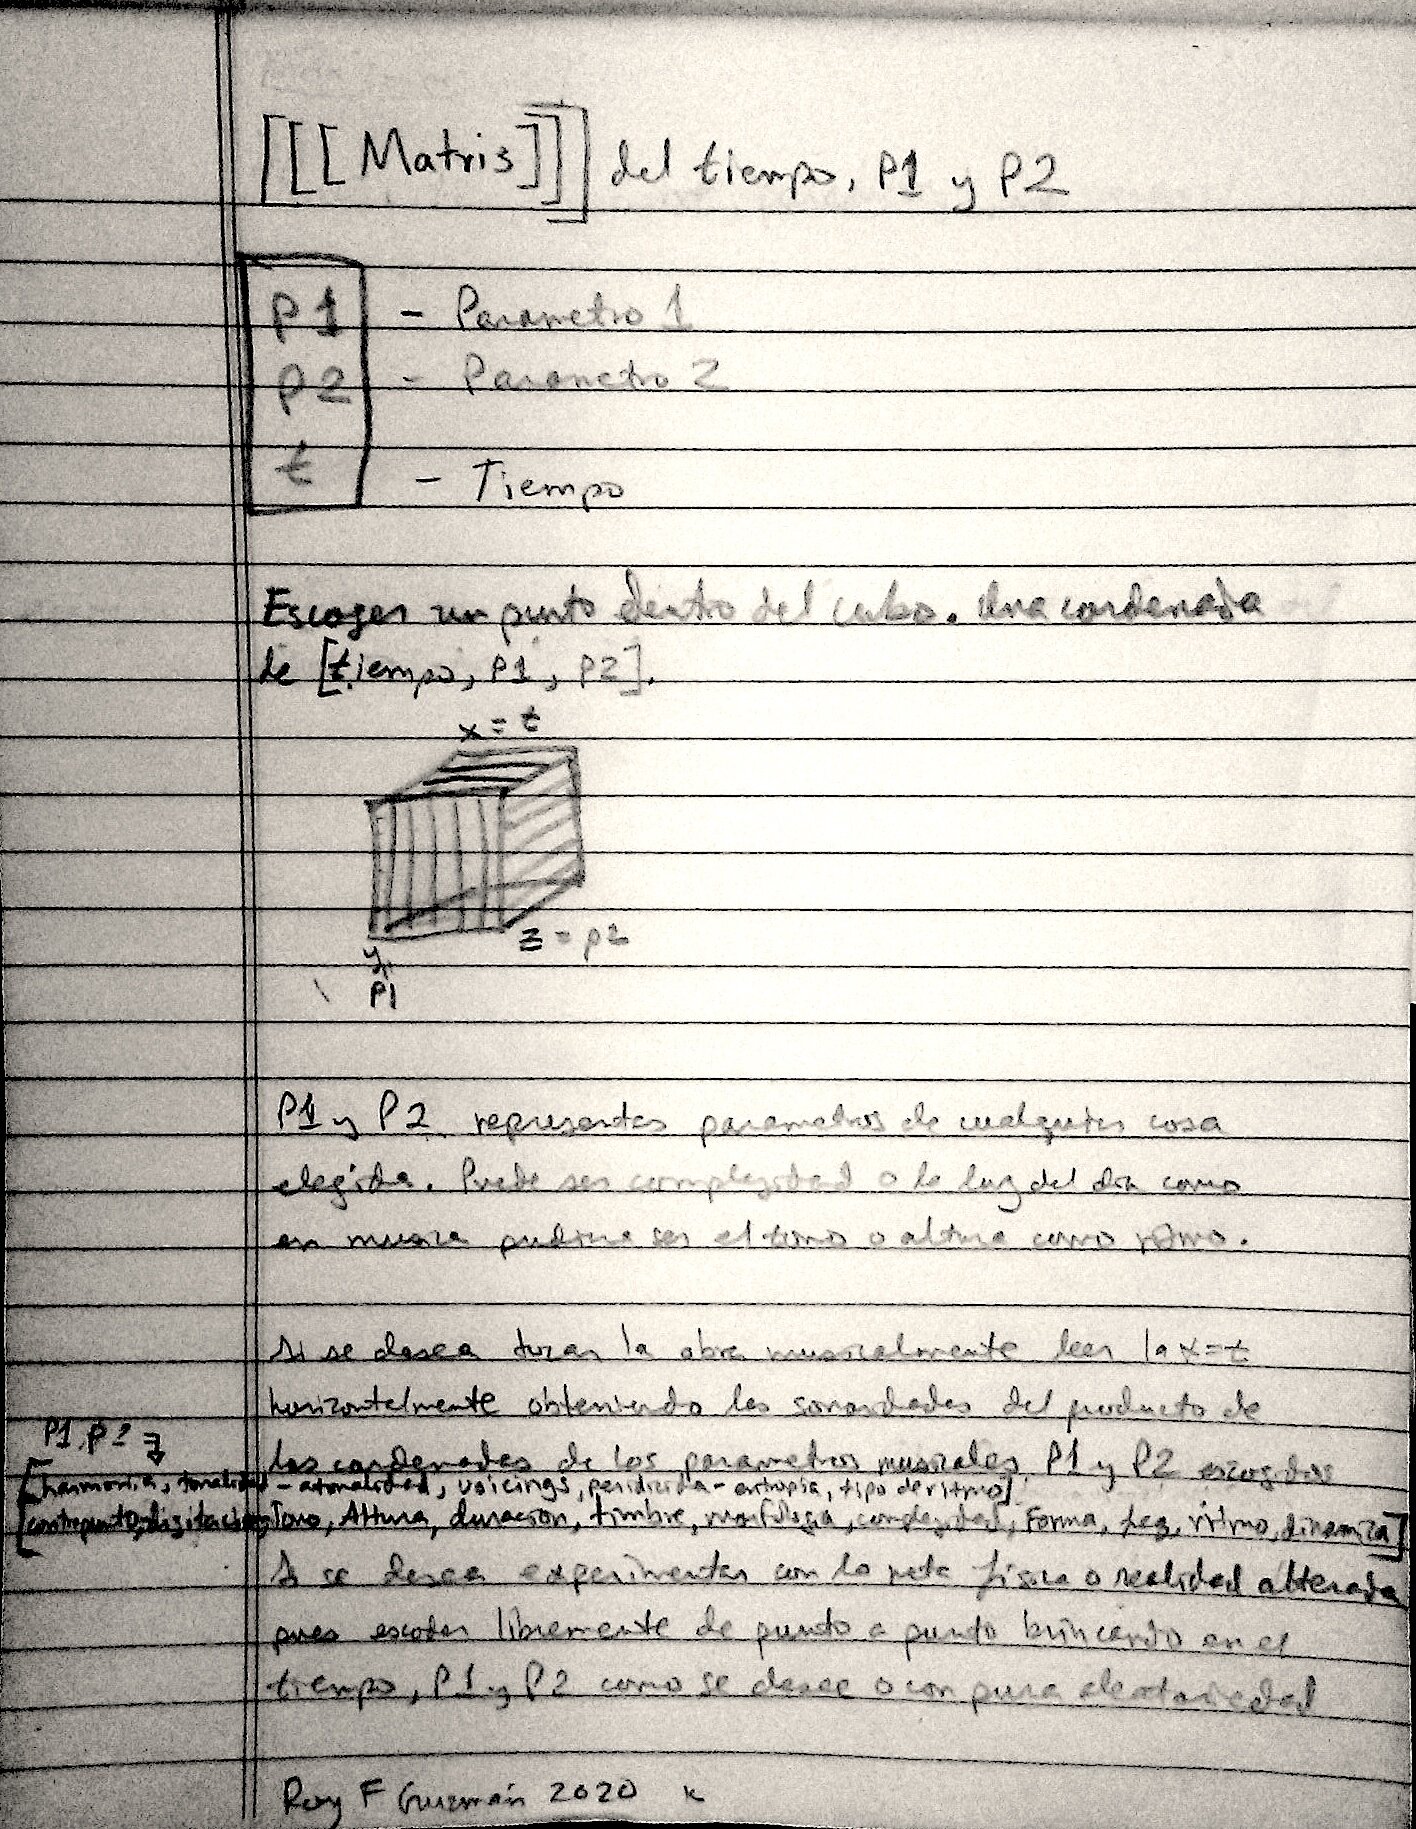 [[[Matris]]] del tiempo, P1 y P2
P1 - Parametro 1
P2 - Parametro 2
t - Tiempo
Escoger un punto dentro del cubo. Una cordenada
de [tiempo, P1, P2].
x = t
z = p2
y
P1
P1 y P2 representas parametros de cualquier cosa
elegida. Puede ser complegidad o la luz del dia como
en musica pudiera ser el tono o altura como ritmo.
Si se desea tocar la obra musicalmente leer la x=t
horizontalmente obteniendo las sonoridades del producto de
las cordenadas de los parametros musicales P1 y P2 escogidos
P1, P2
[harmonia, tonalidad - atonalidad, voicings, peridicida - entropia, tipo de ritmo]
[contrapunto, digitacion, Tono, Altura, duracion, timbre, morfologia, complegidad, Forma, ritmo, dinamica]
Si se desea experimentar con la meta fisica o realidad alterada
pues escoder libremente de punto a punto brincando en el
tiempo, P1 y P2 como se desee o con pura aleatoriedad
Roy F Guzmán 2020